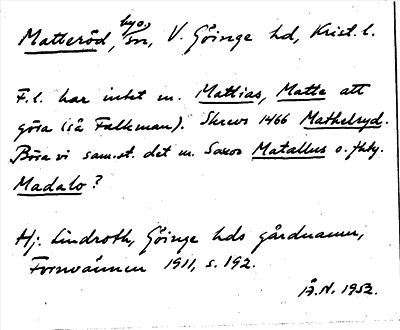 Matteröd, by o. sn, V. Göinge hd, Krist. l.
F.l. har intet m. Mattias, Matte att
göra (så Falkman). Skrevs 1466 Mathelryd.
Böra vi sam.st. det m. Saxos Matallus o. fht.
Madalo?
Hj. Lindroth, Göinge hds gårdnamn,
Fornvännen 1911, s. 192.
Å.N. 1952.